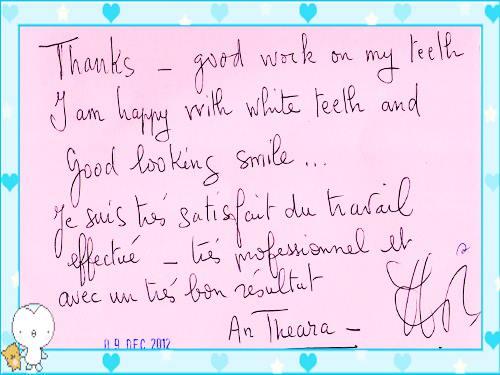 Thanks - good work on my teeth
I am happy with white teeth and
Good looking smile...
Je suis très satisfait du travail
effectué - très professionnel et
avec un très bon résultat
An Theara -
09 DEC 2012